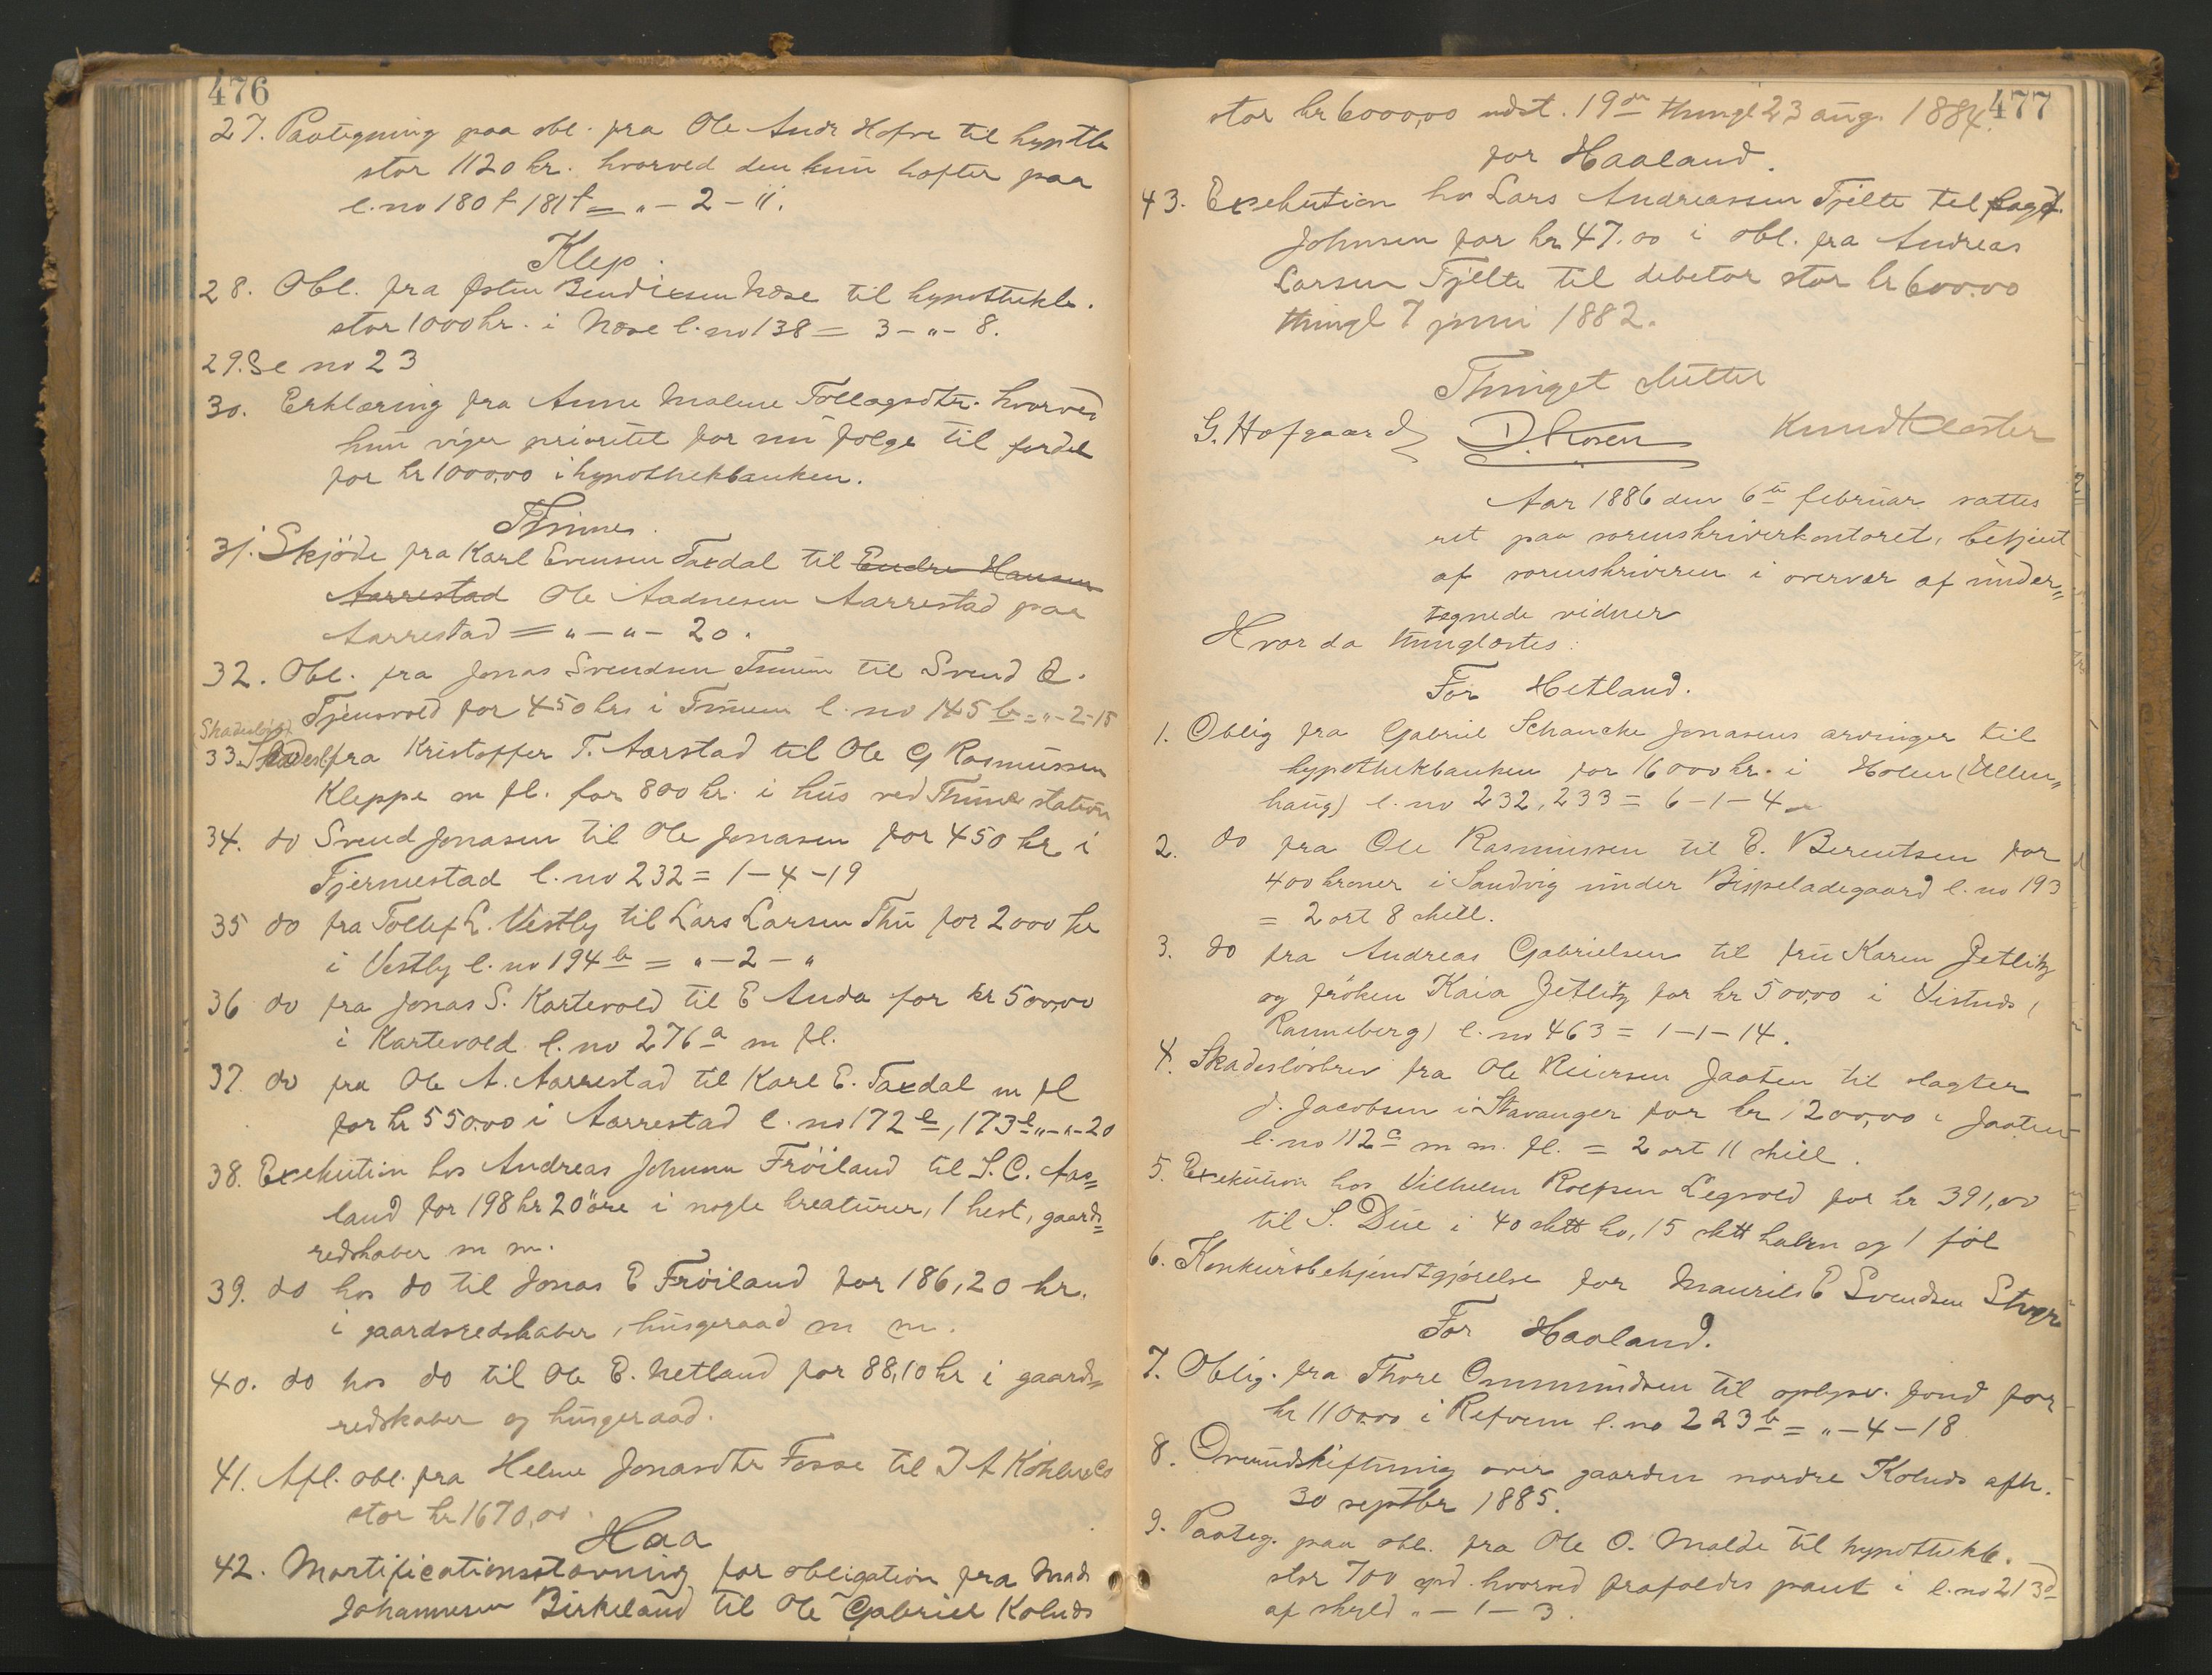 476
27. Paategning paa obl. fra Ole Andr Hofve til hypthb
stor 1120 kr. hvorved den kun hefter paa
l.no 180 f 181 f = „ - 2 - 11.
Klep.
28. Obl. fra Østen Bendixsen Næse til hypothekb.
stor 1000 kr. i Næse l.no 138 = 3 - „ - 8.
29. Se no 23
30. Erklæring fra Anne Malene Tollagsdtr. hvorved
hun viger prioritet for sin følge til fordel
for kr 1000,00 i hypothekbanken.
Thime.
31. Skjøde fra Karl Evensen Taxdal til Endre Hansen
Aarrestad Ole Aadnesen Aarrestad paa
Aarrestad = „ - „ - 20.
32. Obl. fra Jonas Svendsen Time til Svend E.
Tjensvold for 450 krs i Time l.no 145 b = „ - 2 - 15
Skadesløsb
33. fra Kristoffer T. Aarstad til Ole G Rasmussen
Kleppe m fl. for 800 kr. i hus ved Thime station
34. do Svend Jonasen til Ole Jonasen for 450 kr i
Fjermestad l.no 232 = 1 - 4 - 19
35 do fra Tollef L. Vestly til Lars Larsen Thu for 2000 kr
i Vestly l.no 194 b = „ - 2 - „
36 do fra Jonas S. Kartevold til E Anda for kr 500,00
i Kartevold l.no 276 a m fl.
37. do fra Ole A. Aarrestad til Karl E. Taxdal m fl
for kr 550,00 i Aarrestad l.no 172 e, 173 e „ - „ - 20
38. Exekution hos Andreas Johnsen Frøiland til S. C. Aas=
land for 198 kr 20 øre i nogle kreaturer, 1 hest, gaards=
redskaber m m.
39. do hos do til Jonas E Frøiland for 186,20 kr.
i gaardsredskaber, husgeraad m m.
40. do hos do til Ole E. Netland for 88,10 kr i gaards=
redskaber og husgeraad.
41. Afl. obl. fra Helene Jonasdtr Fosse til J A Köhler & Co
stor kr 1670,00.
Haa
42. Mortificationsstævning for obligation fra Mads
Johannesen Birkeland til Ole Gabriel Kolnes
477
stor kr 6000,00 udst. 19de thingl 23 aug. 1884.
for Haaland.
43. Exekution hos Lars Andreassen Tjelte til sagf.
Johnsen for kr 47.00 i obl. fra Andreas
Larsen Tjelte til debetor stor kr 600.00
thingl 7 juni 1882.
Thinget sluttet
G. Hofgaard D. Rosen Knud Kloster
Aar 1886 den 6te februar sattes
ret paa sorenskriverkontoret, betjent
af sorenskriveren i overvær af under=
tegnede vidner
Hvor da thinglæstes:
For Hetland.
1. Oblig fra Gabriel Schancke Jonasens arvinger til
hypothekbanken for 16000 kr. i Holen (Ullen=
haug) l.no 232, 233 = 6 - 1 - 4
2. do fra Ole Rasmussen til E. Berentsen for
400 kroner i Sandvig under Bispeladegaard l.no 193
= 2 ort 8 skill.
3. do fra Andreas Gabrielsen til fru Karen Zetlitz
og frøken Kaia Zetlitz for kr 500,00 i Vistnæs (
Ranneberg) l.no 463 = 1 - 1 - 14.
4. Skadesløsbrev fra Ole Reiersen Jaaten til slagter
J. Jacobsen i Stavanger for kr 1200,00 i Jaaten
l.no 112 c m m. fl. = 2 ort 11 skill.
5. Exekution hos Vilhelm Roefsen Legvold for kr 391,00
til S. Due i 40 sktt ho, 15 sktt halm og 1 føl
6. Konkursbekjendtgjørelse for Maurits E Svendsen Stvgr
For Haaland.
7. Oblig. fra Thore Ommundsen til oplysn. fond for
kr 1100,00 i Refvem l.no 223 b = „ - 4 - 18
8. Omudskiftning over gaarden nordre Kolnes afh.
30 septbr 1885.
9. Paateg. paa obl. fra Ole O. Malde til hypothekb.
stor 700 spd. hvorved frafaldes pant i l.no 213 d
af skyld „ - 1 - 3.